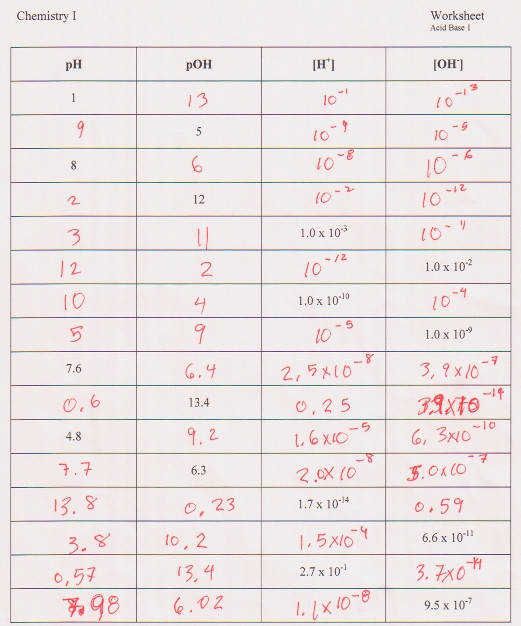 Chemistry I Worksheet
Acid Base 1
pH pOH [H⁺] [OH⁻]
1 13 10⁻¹ 10⁻¹³
9 5 10⁻⁹ 10⁻⁵
8 6 10⁻⁸ 10⁻⁶
2 12 10⁻² 10⁻¹²
3 11 1.0 x 10⁻³ 10⁻¹¹
12 2 10⁻¹² 1.0 x 10⁻²
10 4 1.0 x 10⁻¹⁰ 10⁻⁴
5 9 10⁻⁵ 1.0 x 10⁻⁹
7.6 6.4 2,5x10⁻⁸ 3,9x10⁻⁷
0,6 13.4 0,25 10⁻¹⁴
4.8 9.2 1.6x10⁻⁵ 6,3x10⁻¹⁰
7.7 6.3 2.0x10⁻⁸ 5.0x10⁻⁷
13.8 0,23 1.7 x 10⁻¹⁴ 0,59
3.8 10,2 1.5x10⁻⁴ 6.6 x 10⁻¹¹
0,57 13,4 2.7 x 10⁻¹ 3.7x0⁻¹⁴
98 6.02 1.1x10⁻⁸ 9.5 x 10⁻⁷